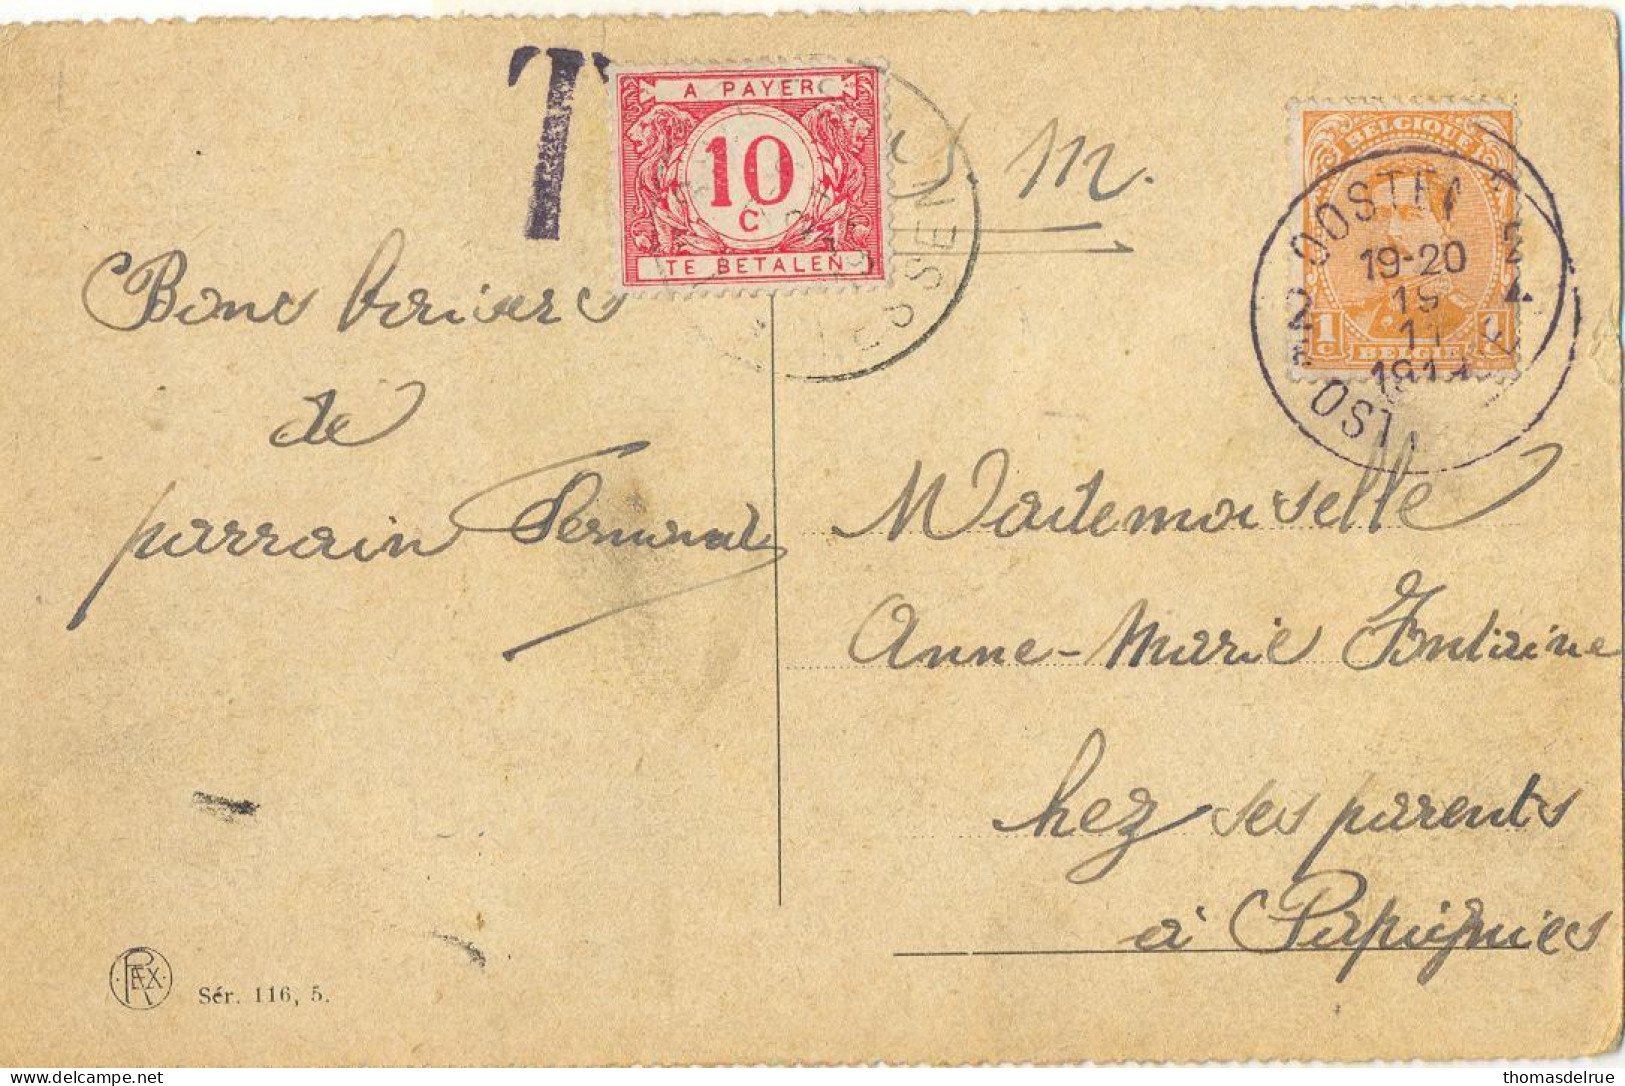 T
A PAYER
10
C
TE BETALEN
LESSEN
M.
BELGIQUE
1c 1c
BELGIË
19-20
19
11
Bons baisers
de
parrain Fernand
Mademoiselle
Anne-Marie Fontaine
chez ses parents
à Papignies
REX
Sér. 116, 5.
delcampe.net
thomasdelrue